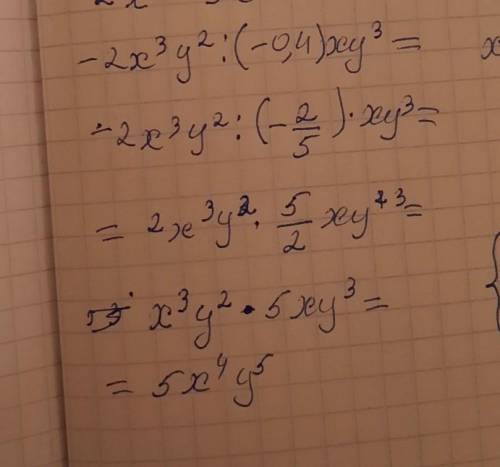 -2x³y² : (-0,4)xy³ =
-2x³y² : (-2/5) · xy³ =
= 2x³y² · 5/2 xy³ =
x³y² · 5xy³ =
= 5x⁴y⁵